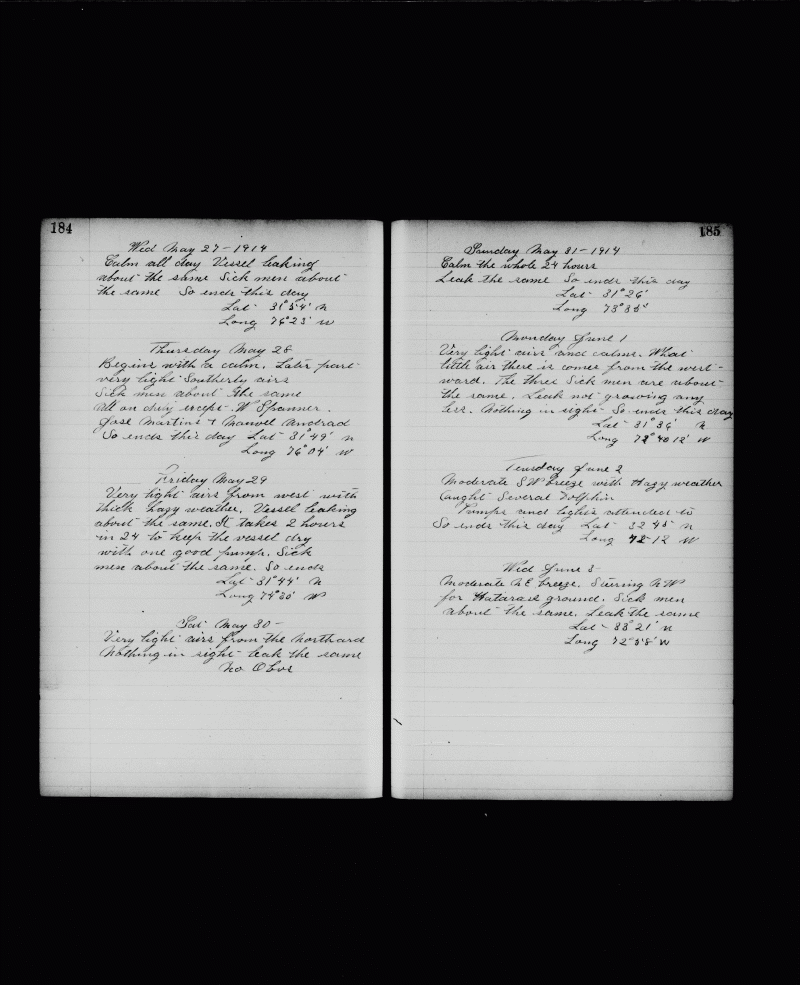 184
Wed May 27-1914
Calm all day Vessel leaking
about the same Sick men about
the same So ends this day
Lat 31° 54' N
Long 76° 23' W
Thursday May 28
Begins with a calm. Later part
very light Southerly airs
Sick men about the same
All on duty except W Spanner.
José Martins & Manoell Andrad
So ends this day Lat 31° 49' N
Long 76° 04' W
Friday May 29
Very light airs from west with
thick hazy weather. Vessel leaking
about the same. It takes 2 hours
in 24 to keep the vessel dry
with one good pump. Sick
men about the same. So ends
Lat 31° 44' N
Long 74° 30' W
Sat May 30-
Very light airs from the Northard
Nothing in sight leak the same
No Obvs
185
Sunday May 31-1914
Calm the whole 24 hours
Leak the same So ends this day
Lat 31° 26'
Long 73° 35'
Monday June 1
Very light airs and calms. What
little air there is comes from the west-
ward. The three Sick men are about
the same. Leak not growing any
less. Nothing in sight So ends this day
Lat 31° 36' N
Long 72° 12' W
Teusday June 2
Moderate SW breeze with Hazy weather
Caught Several Dolphin
Pumps and lights attended to
So ends this day Lat 32 45' N
Long 72-12 W
Wed June 3-
Moderate NE breeze. Stiring NW
for Hataras ground. Sick men
about the same. Leak the same
Lat 33° 21' N
Long 72° 58' W